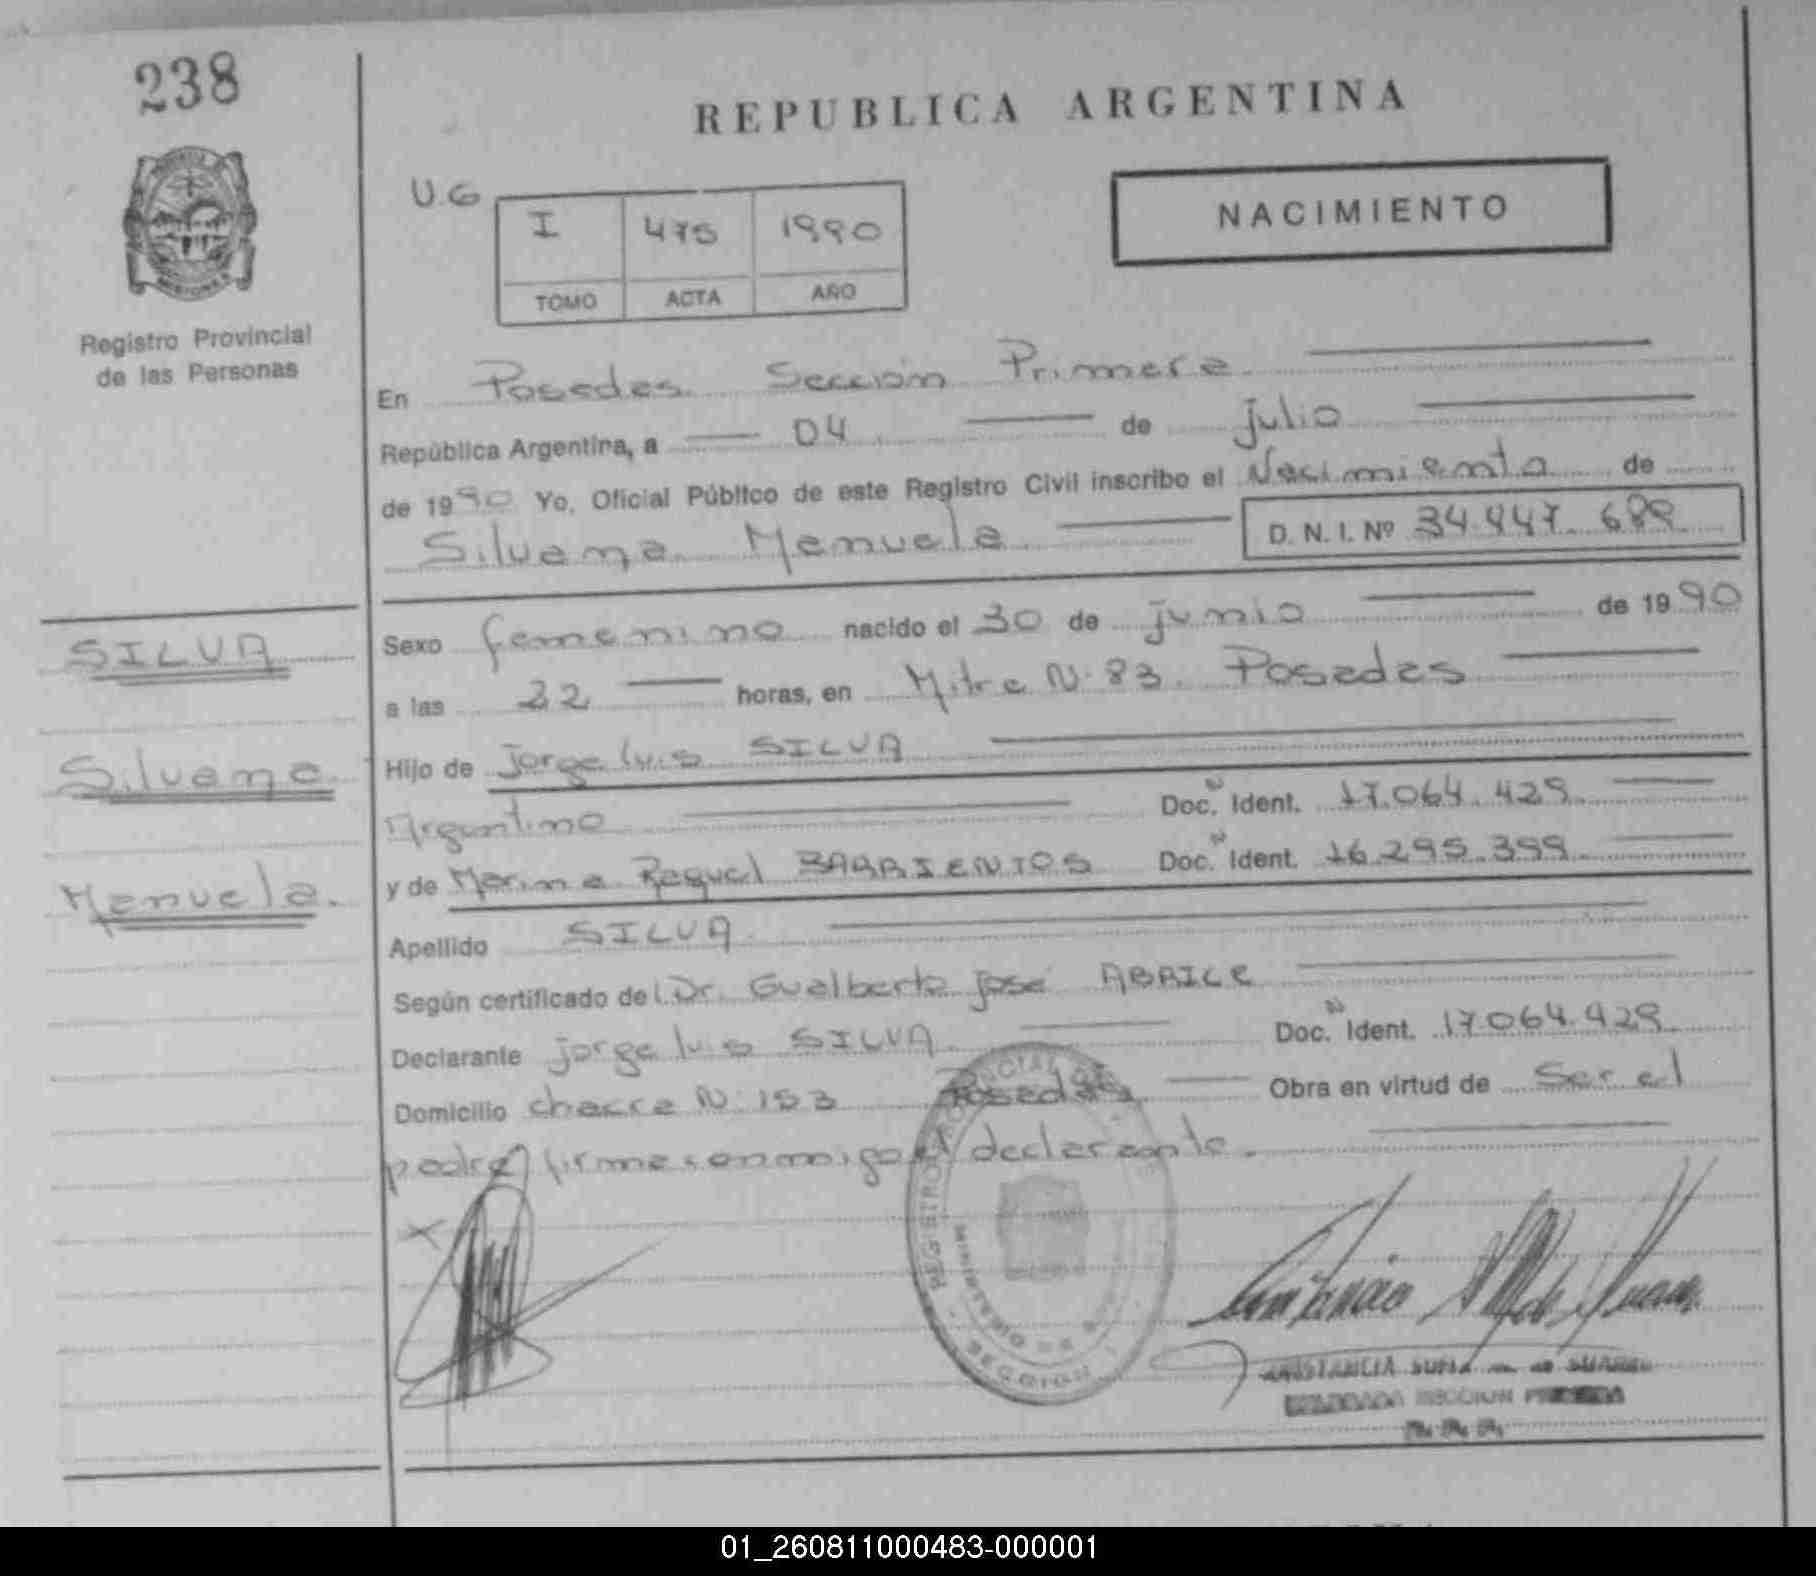 238
REPUBLICA ARGENTINA
U.G
I 475 1990
TOMO ACTA AÑO
NACIMIENTO
MISIONES
Registro Provincial
de las Personas
En Posadas Sección Primera
República Argentina, a 04 de julio
de 1990 Yo, Oficial Público de este Registro Civil inscribo el Nacimiento de
Silvana Manuela D. N. I. Nº 34.447.689
SILVA
Silvana
Manuela.
Sexo femenino nacido el 30 de junio de 1990
a las 22 horas, en Mitre N.83. Posadas
Hijo de Jorge Luis SILVA
Argentino Doc. Ident. 17.064.429.
y de Marina Raquel BARRIENTOS Doc. Ident. 16.295.399.
Apellido SILVA
Según certificado de Dr. Gualberto José
Declarante Jorge Luis SILVA. Doc. Ident. 17.064.429.
Domicilio chacra N. 153 Posadas Obra en virtud de Ser el
padre firma conmigo el declarante.
REGISTRO PROVINCIAL DE
MINISTERIO DE
SECCION
CONSTANCIA DE SUAREZ
SECCION PRIMERA
01_260811000483-000001